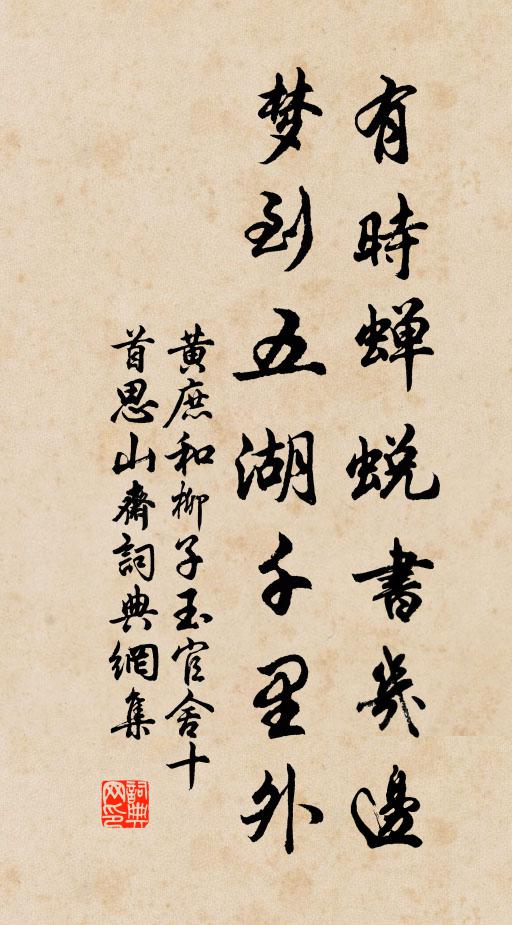 有時蝉蜕書几邊
梦到五湖千里外
黄庶和柳子玉官舍十
首思山齋詞典網集
詞典网印